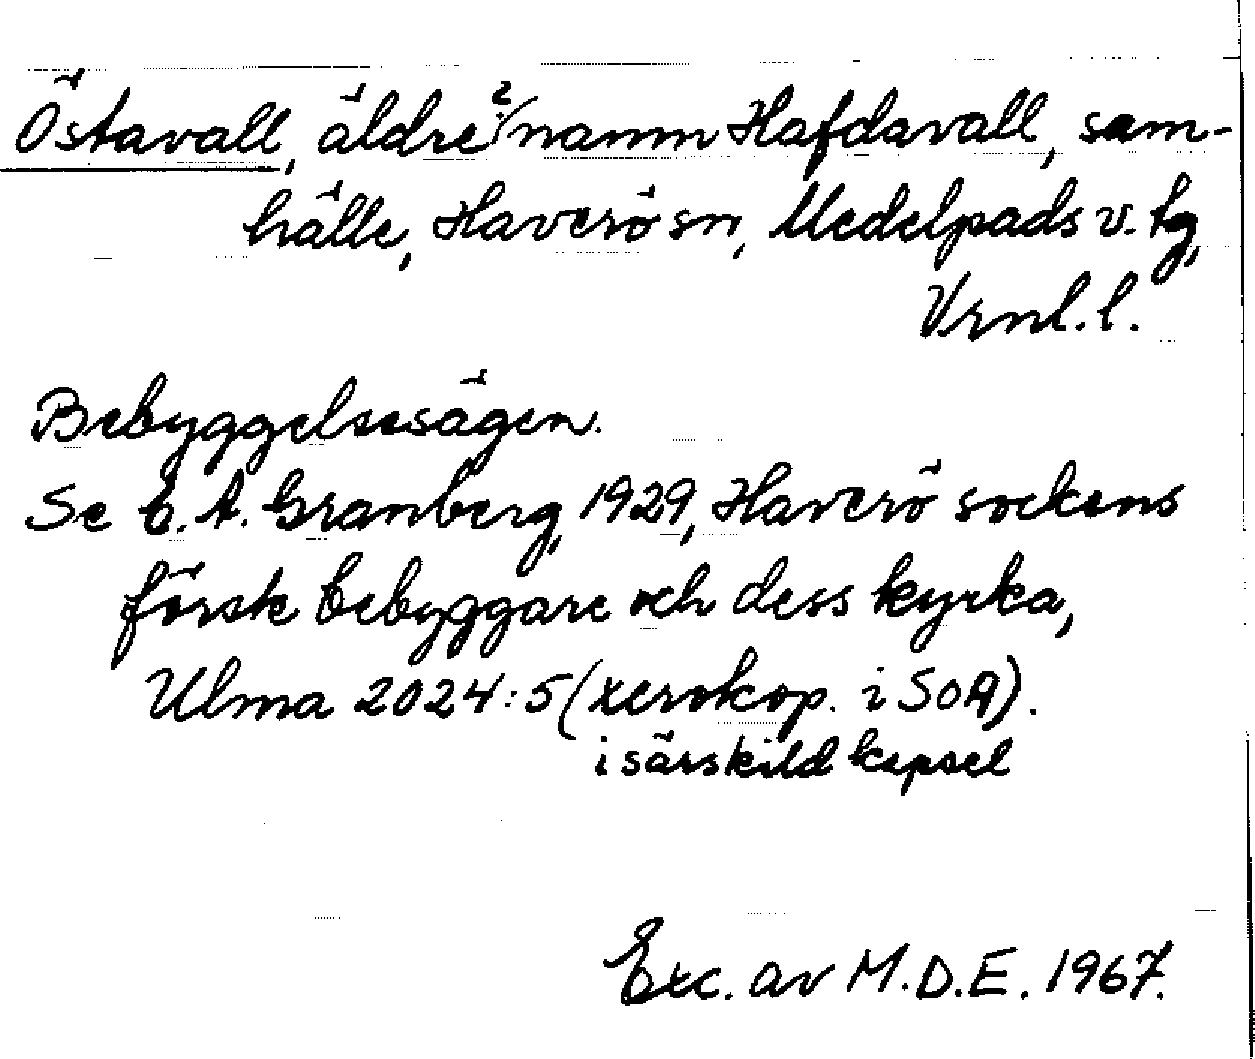 Östavall, äldre ?/namn Hafdavall, sam-
hälle, Haverö sn, Medelpads v. tg,
Vrnl. l.
Bebyggelsesägen.
Se E. A. Granberg, 1929, Haverö sockens
förste bebyggare och dess kyrka,
Ulma 2024:5 (xerokop. i SOA).
i särskild kapsel
Exc. av M.D.E. 1967.